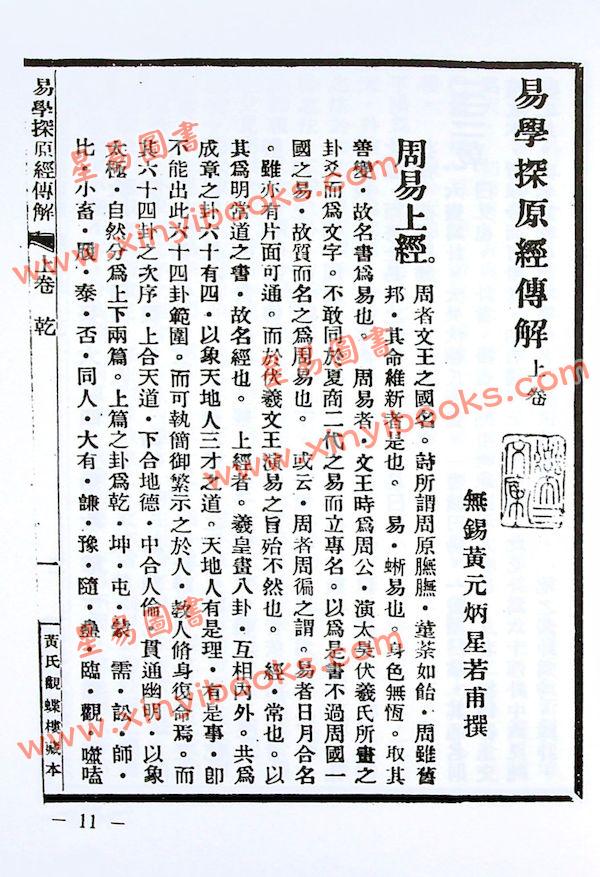 易學探原經傳解 上卷
無錫黃元炳星若甫撰
周易上經。
周者文王之國名。詩所謂周原膴膴・菫荼如飴・周雖舊
邦・其命維新者是也。　易・蜥易也。身色無恆。取其
善變　故名書爲易也。　周易者・文王時爲周公・演太昊伏羲氏所畫之
卦爻而爲文字。不敢同於夏商二代之易而立專名。以爲是書不過周國一
國之易・故質而名之爲周易也。　或云・周者周徧之謂。易者日月合名
。雖亦有片面可通。而於伏羲文王演易之旨殆不然也。　經・常也。以
其爲明常道之書・故名經也。　上經者。羲皇畫八卦・互相內外。共爲
成章之卦六十有四・以象天地人三才之道。天地人有是理・有是事・卽
不能出此六十四卦範圍。而可執簡御繁示之於人・教人脩身復命焉。而
其六十四卦之次序・上合天道・下合地德・中合人倫・貫通幽明・以象
太極・自然分爲上下兩篇。上篇之卦爲乾・坤・屯・蒙・需・訟・師・
比・小畜・履・泰・否・同人・大有・謙・豫・隨・蠱・臨・觀・噬嗑
易學探原經傳解 上卷 乾
一
黃氏觀蝶樓藏本
— 11 —
星易圖書
www.xinyibooks.com
星易圖書
www.xinyibooks.com
星易圖書
www.xinyibooks.com